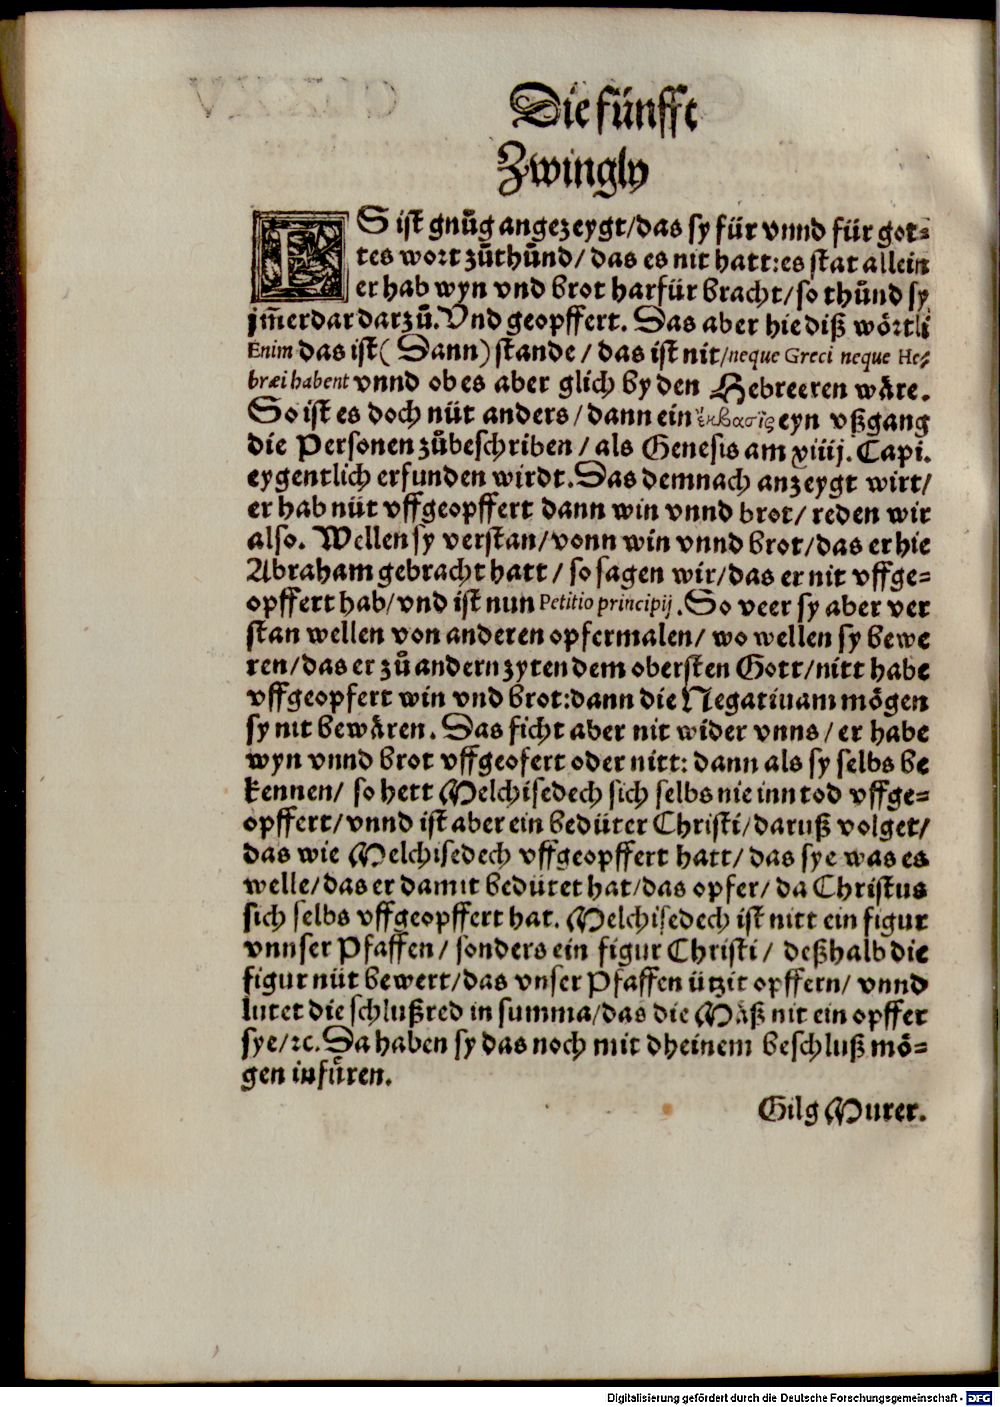 Die fünfft
Zwingly
ES ist gnůg angezeygt/das sy für vnnd für got-
tes wort zůthůnd/ das es nit hatt:es stat allein
er hab wyn vnd brot harfür bracht/so thůnd sy
jm̃erdar darzů. Vnd geopffert. Das aber hie diß wörtli
Enim das ist( Dann) stande / das ist nit/neque Greci neque He-
bræi habent vnnd ob es aber glich by den Hebreeren wäre.
So ist es doch nüt anders/ dann ein ἔκβασις eyn vßgang
die Personen zůbeschriben/ als Genesis am xiiij. Capi.
eygentlich erfunden wirdt. Das demnach anzeygt wirt/
er hab nüt vffgeopffert dann win vnnd brot/ reden wir
also. Wellen sy verstan/vonn win vnnd brot/das er hie
Abraham gebracht hatt/ so sagen wir/das er nit vffge-
opffert hab/vnd ist nun Petitio principij. So veer sy aber ver
stan wellen von anderen opfermalen/ wo wellen sy bewe
ren/das er zů andern zyten dem obersten Gott/nitt habe
vffgeopfert win vnd brot:dann die Negatiuam mögen
sy nit bewären. Das ficht aber nit wider vnns/ er habe
wyn vnnd brot vffgeofert oder nitt: dann als sy selbs be
kennen/ so hett Melchisedech sich selbs nie inn tod vffge-
opffert/vnnd ist aber ein bedüter Christi/daruß volget/
das wie Melchisedech vffgeopffert hatt/ das sye was es
welle/das er damit bedütet hat/das opfer/ da Christus
sich selbs vffgeopffert hat. Melchisedech ist nitt ein figur
vnnser Pfaffen/ sonders ein figur Christi/ deßhalb die
figur nüt bewert/das vnser Pfaffen ützit opffern/ vnnd
lutet die schlußred in summa/das die Mäß nit ein opffer
sye/ꝛc. Da haben sy das noch mit dheinem beschluß mö-
gen infüren.
Gilg Murer.
Digitalisierung gefördert durch die Deutsche Forschungsgemeinschaft - DFG